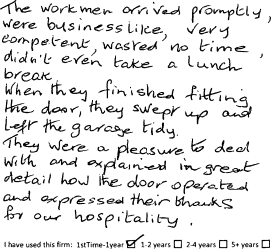 The workmen arrived promptly,
were businesslike, very
competent, wasted no time,
didn't even take a lunch
break.
When they finished fitting
the door, they swept up and
left the garage tidy.
They were a pleasure to deal
with and explained in great
detail how the door operated
and expressed their thanks
for our hospitality.
I have used this firm: 1stTime-1year ☑ 1-2 years ☐ 2-4 years ☐ 5+ years ☐